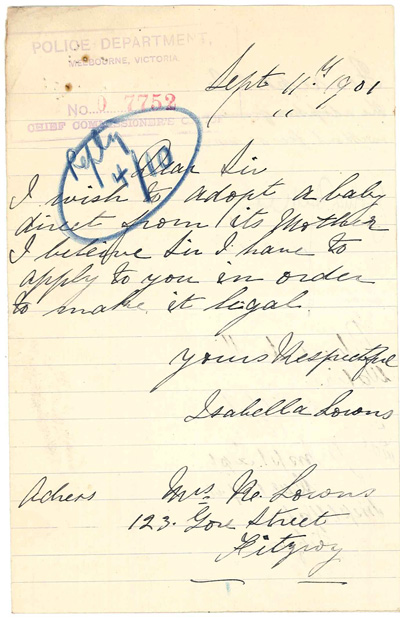 POLICE DEPARTMENT,
MELBOURNE, VICTORIA
No. 0 7752
CHIEF COMMISSIONER'S
Reply
4/10
Sept 11th 1901
Dear Sir
I wish to adopt a baby
direct from its Mother
I beleive Sir I have to
apply to you in order
to make it legal.
yours Respectful
Isabella Lowns
Adress Mrs Lowns
123. Gore Street
Fitzroy